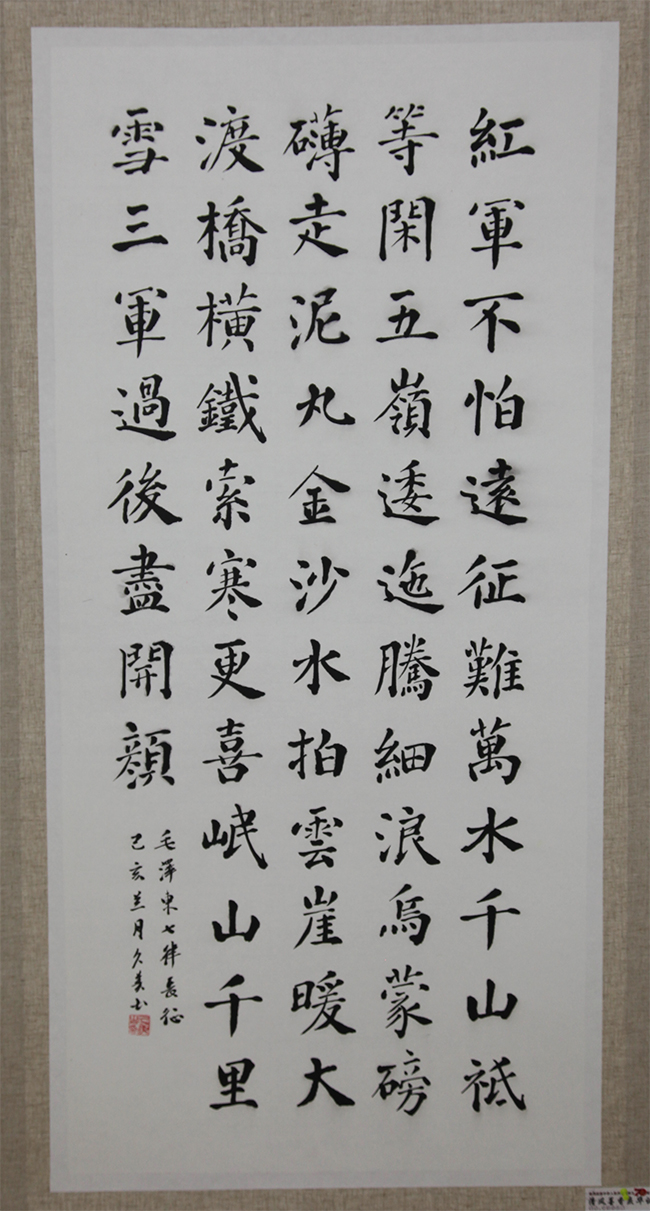 紅軍不怕遠征難萬水千山祗
等閑五嶺逶迤騰細浪烏蒙磅
礴走泥丸金沙水拍雲崖暖大
渡橋橫鐵索寒更喜岷山千里
雪三軍過後盡開顏
毛澤東七律長征
己亥蘭月久美书